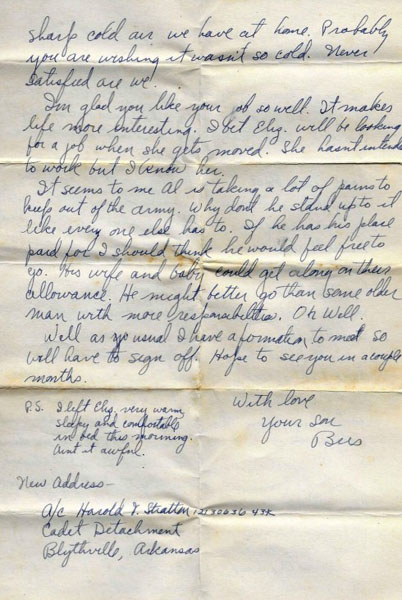 sharp cold air we have at home. Probably
you are wishing it wasn't so cold. Never
satisfied are we.
I'm glad you like your job so well. It makes
life more interesting. I bet Elig. will be looking
for a job when she gets moved. She hasn't intends
to work but I know her.
It seems to me Al is taking a lot of pains to
keep out of the army. Why don't he stand up to it
like every one else has to. If he has his place
paid for I should think he would feel free to
go. His wife and baby could get along on their
allowance. He might better go than some older
man with more responsibilities. Oh Well.
Well as usual I have a formation to meet so
will have to sign off. Hope to see you in a couple
months.
With love
Your son
P.S. I left Elig. very warm,
sleepy and comfortable
in bed this morning.
Aint it awful.
New Address—
A/C Harold V. Stratton
Cadet Detachment
Blythville, Arkansas